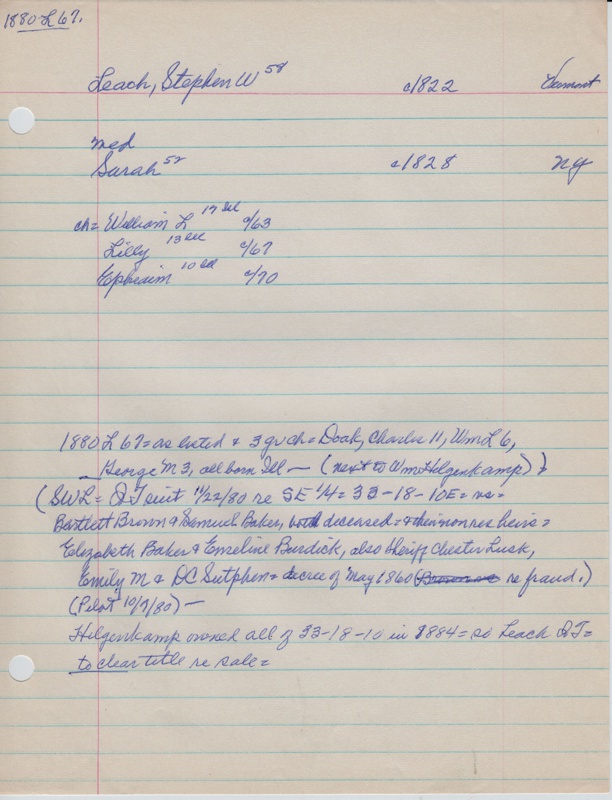 1880-L 67.
Leach, Stephen W 58 c1822 Vermont
med
Sarah 52 c1828 NY
ch= William L 17 Ill c/63
Lilly 13 Ill c/67
Ephraim 10 Ill c/70
1880 L 67 = as listed & 3 gr ch = Doak, Charles 11, Wm L 6,
George M 3, all born Ill — (next to Wm Hilgenkamp)
(SWL = QT suit 11/22/80 re SE 1/4 = 33-18-10E = vs =
Bartlett Brown & Samuel Baker, both deceased = & their non res heirs =
Elizabeth Baker & Emeline Burdick, also Sheriff Chester Lusk,
Emily M & DC Sutphen = decree of May 1860 re fraud.)
(Pilot 10/7/80) —
Hilgenkamp owned all of 33-18-10 in 1884 = so Leach QT =
to clear title re sale =